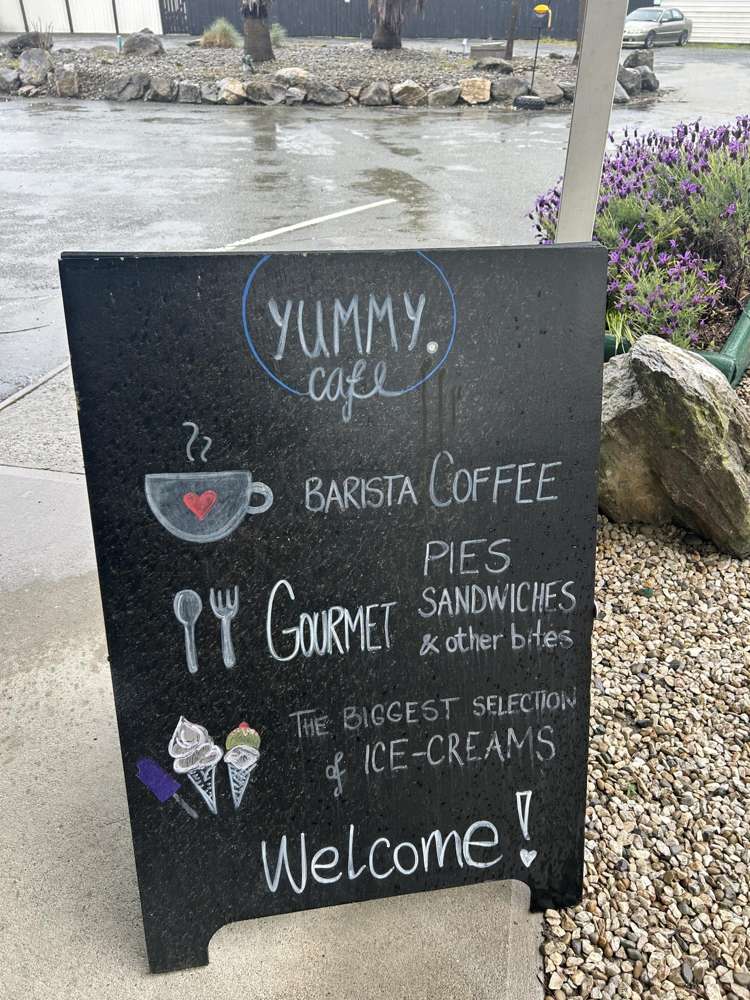 YUMMY.
cafe
BARISTA COFFEE
GOURMET PIES
SANDWICHES
& other bites
THE BIGGEST SELECTION
of ICE-CREAMS
Welcome!